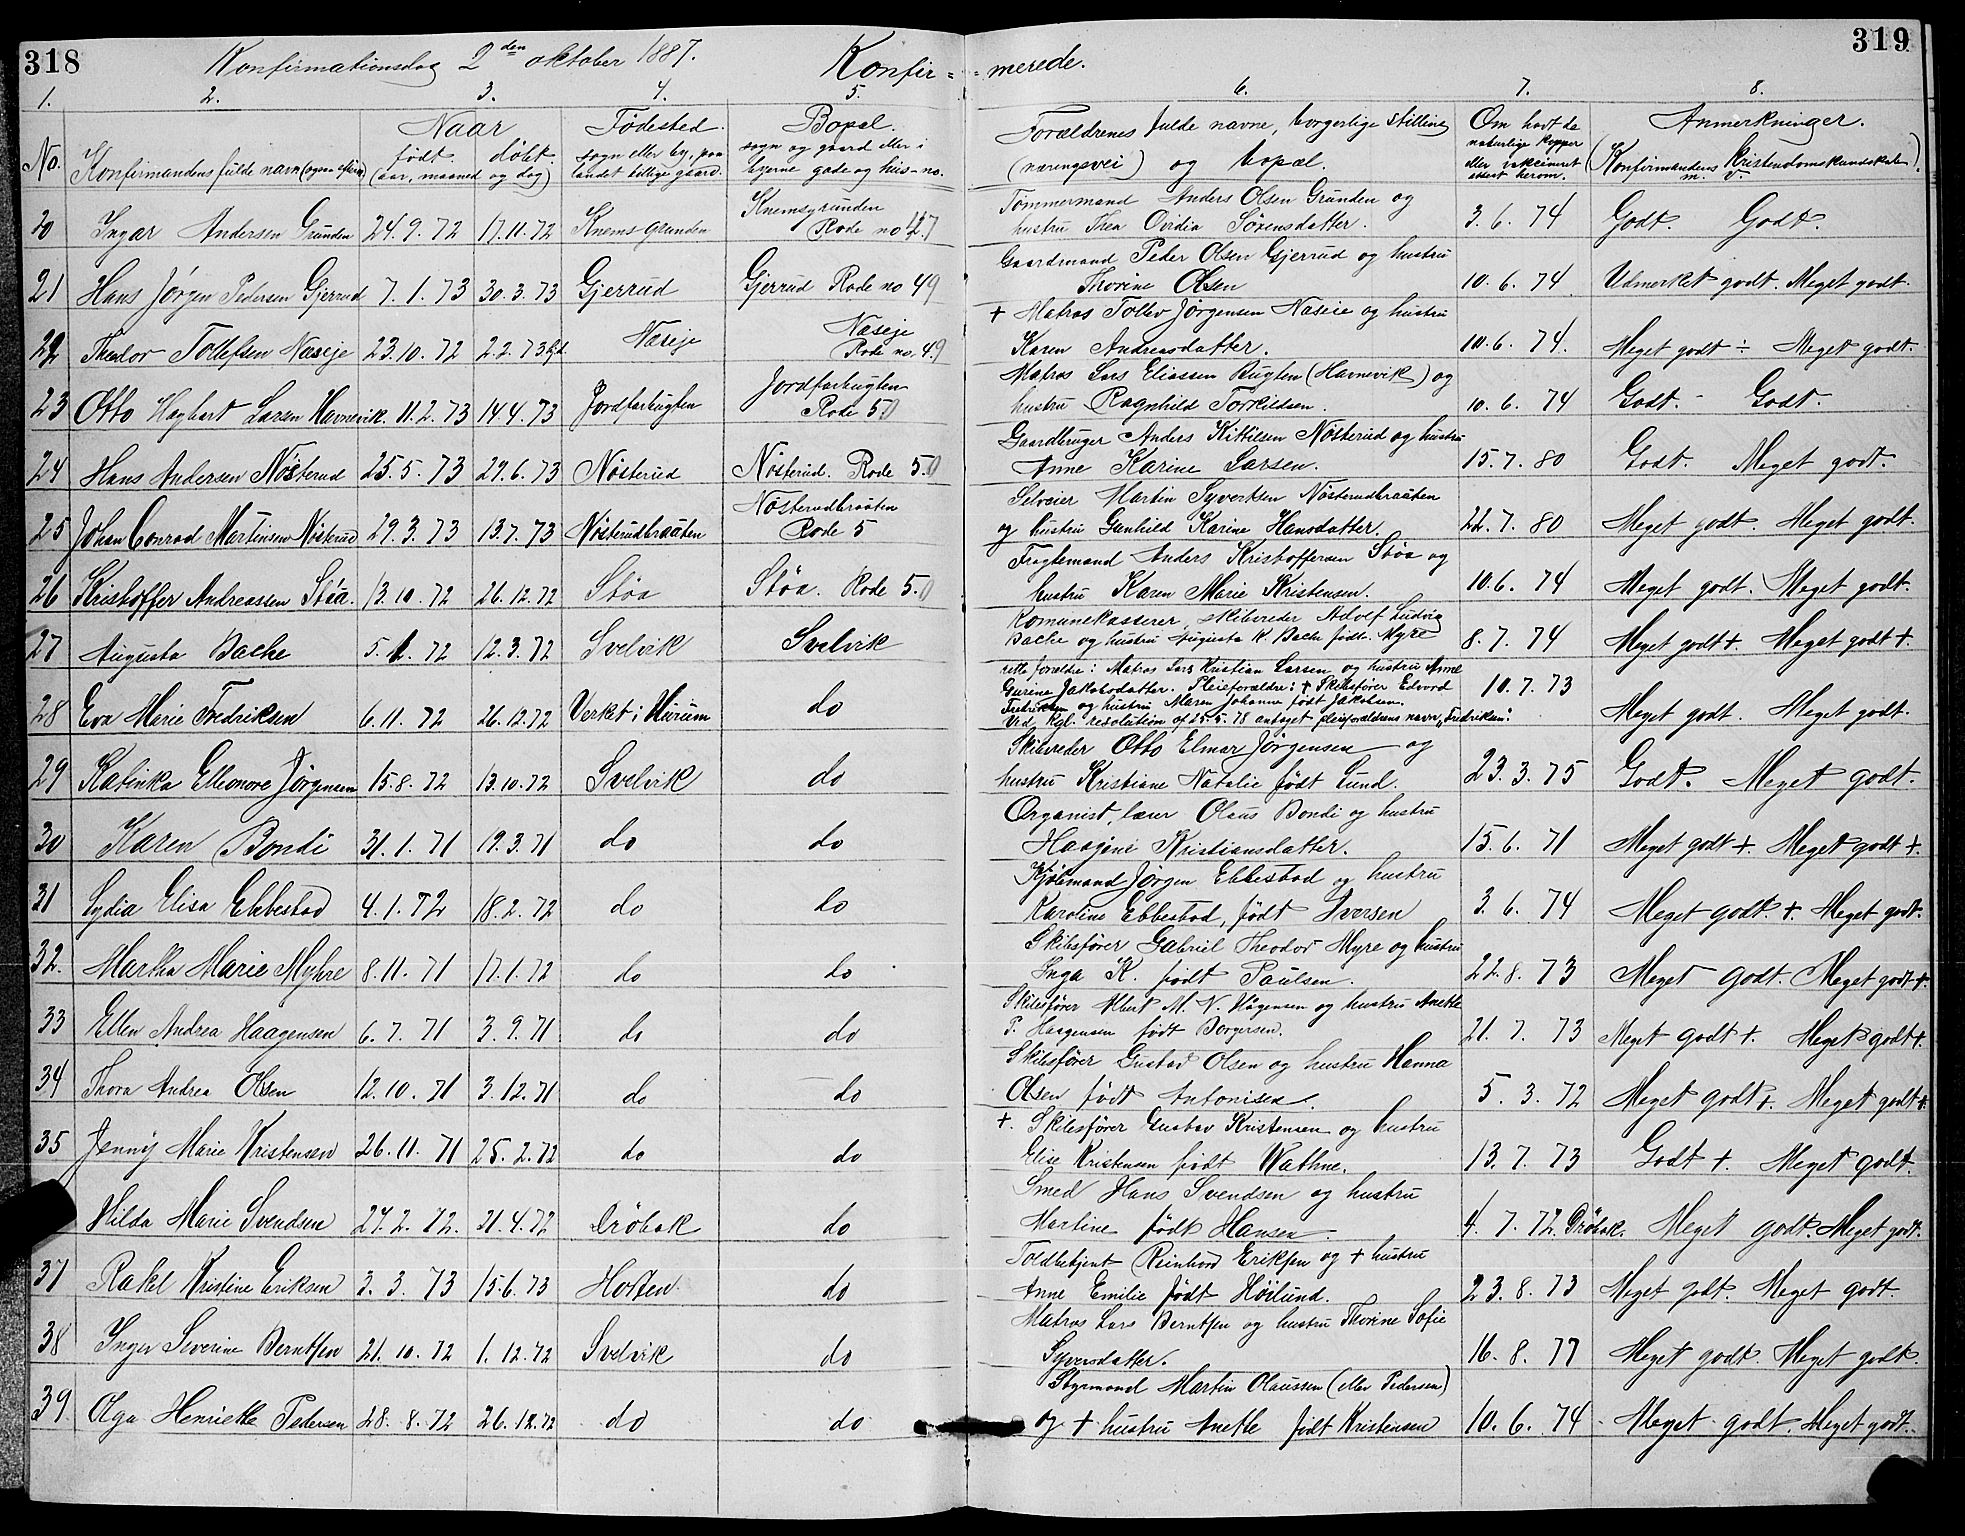 318 Konfirmationsdag 2den oktober 1887. Konfir= =merede. 319
1. 2. 3. 4. 5. 6. 7. 8.
No. Konfirmandens fulde navn Naar født døbt (aar, maaned og dag) Fødested. sogn eller by, paa landet tillige gaard. Bopæl. sogn og gaard eller i byerne gade og hus-no. Forældrenes fulde navne, borgerlige stilling (næringsvei) og bopæl. Om havt de naturlige kopper eller vakcineret attest herom. Anmerkninger. (Konfirmandens kristendomskundskaber m. v.)
20 Ingar Andersen Grunden 24.9.72 17.11.72 Knemsgrunden Knemsgrunden Rode no 47 Tømmermand Anders Olsen Grunden og hustru Thea Ovidia Sørensdatter. 3.6.74 Godt. Godt.
21 Hans Jørgen Pedersen Gjerrud 7.1.73 30.3.73 Gjerrud Gjerrud Rode no 49 Gaardmand Peder Olsen Gjerrud og hustru Thorine Olsen 10.6.74. Udmerket godt. Meget godt.
22 Theodor Tollefsen Næseje 23.10.72 2.2.73 Næseje Næseje Rode no. 49 + Matros Tollev Jørgensen Naseie og hustru Karen Andreasdatter. 10.6.74. Meget godt ÷ Meget godt.
23 Otto Hagbart Larsen Havnevik. 11.2.73 14.4.73 Jordfarbugten Jordfarbugten Rode 50 Matros Lars Eliassen Bugten (Havnevik) og hustru Ragnhild Torkildsen. 10.6.74 Godt. - Godt.
24 Hans Andersen Nøsterud 25.5.73 29.6.73 Nøsterud Nøsterud. Rode 50 Gaardbruger Anders Kittilsen Nøsterud og hustru Anne Karine Larsen. 15.7.80 Godt. Meget godt.
25 Johan Conrad Martinsen Nøsterud 29.3.73 13.7.73 Nøsterudbraaten Nøsterudbraaten Rode 5 Selveier Martin Syvertsen Nøsterudbraaten og hustru Gunhild Karine Hansdatter. 22.7.80 Meget godt. Meget godt.
26 Kristoffer Andreassen Støa. 13.10.72 26.12.72 Støa Støa. Rode 50 Fragtemand Anders Kristoffersen Støa og hustru Karen Marie Kristensen. 10.6.74 Meget godt. Meget godt.
27 Augusta Bache 5.1.72 12.3.72 Svelvik Svelvik Komunekasserer, skibsreder Adolf Ludvig Bache og hustru Augusta K. Bache født Myre 8.7.74 Meget godt +. Meget godt +.
28 Eva Marie Fredriksen 6.11.72 26.12.72 Verket i Hurum do rette forældre: Matros Lars Kristian Larsen og hustru Anne Gurine Jakobsdatter. Pleieforældre: + Skibsfører Edvard Fredriksen og hustru Maren Johanne født Jakobsen. Ved kgl. resolution af 25.5.78 antaget pleiforældrens navn "Fredriksen". 10.7.73 Meget godt. Meget godt.
29 Katinka Elleonore Jørgensen 15.8.72 13.10.72 Svelvik do Skibsreder Otto Elmar Jørgensen og hustru Kristiane Natalie født Lund. 23.3.75 Godt. Meget godt.
30 Karen Bondi 31.1.71 19.3.71 do do Organist, lærer Olaus Bondi og hustru Haagine Kristiansdatter. 15.6.71 Meget godt +. Meget godt +.
31 Lydia Elisa Ebbestad 4.1.72 18.2.72 do do Kjøbmand Jørgen Ebbestad og hustru Karoline Ebbestad, født Iversen 3.6.74 Meget godt. +. Meget godt.
32. Martha Marie Myhre 8.11.71 17.1.72 do do Skibsfører Gabriel Theodor Myre og hustru Inga K. født Paulsen. 22.8.73 Meget godt. Meget godt +.
33 Ellen Andrea Haagensen 6.7.71 3.9.71 do do Skibsfører Albert M. N. Hågensen og hustru Anette P. Haagensen født Borgersen. 21.7.73 Meget godt +. Meget godt +.
34 Thora Andrea Olsen 12.10.71 3.12.71 do do Skibsfører Gustav Olsen og hustru Hanna Olsen født Antonisen. 5.3.72 Meget godt +. Meget godt +.
35 Jenny Marie Kristensen 26.11.71 25.2.72 do do +. Skibsfører Gustav Kristensen og hustru Elise Kristensen født Wathne. 13.7.73 Godt +. Meget godt.
Hilda Marie Svendsen 27.2.72. 21.4.72 Drøbak do Smed Hans Svendsen og hustru Martine født Hansen. 4.7.72 Drøbak. Meget godt. Meget godt.
37 Rakel Kristine Eriksen 3.3.73 15.6.73 Horten. do Toldbetjent Reinhard Eriksen og + hustru Anne Emilie født Høilund. 23.8.73 Meget godt. Meget godt
38 Inger Severine Berntsen 21.10.72 1.12.72 Svelvik do Matros Lars Berntsen og hustru Thorine Sofie Syversdatter. 16.8.77 Meget godt. Meget godt.
39 Olga Henriette Pedersen 28.8.72 26.12.72 do do Styrmand Martin Olaussen (eller Pedersen) og + hustru Anette født Kristensen 10.6.74. Meget godt. Meget godt.